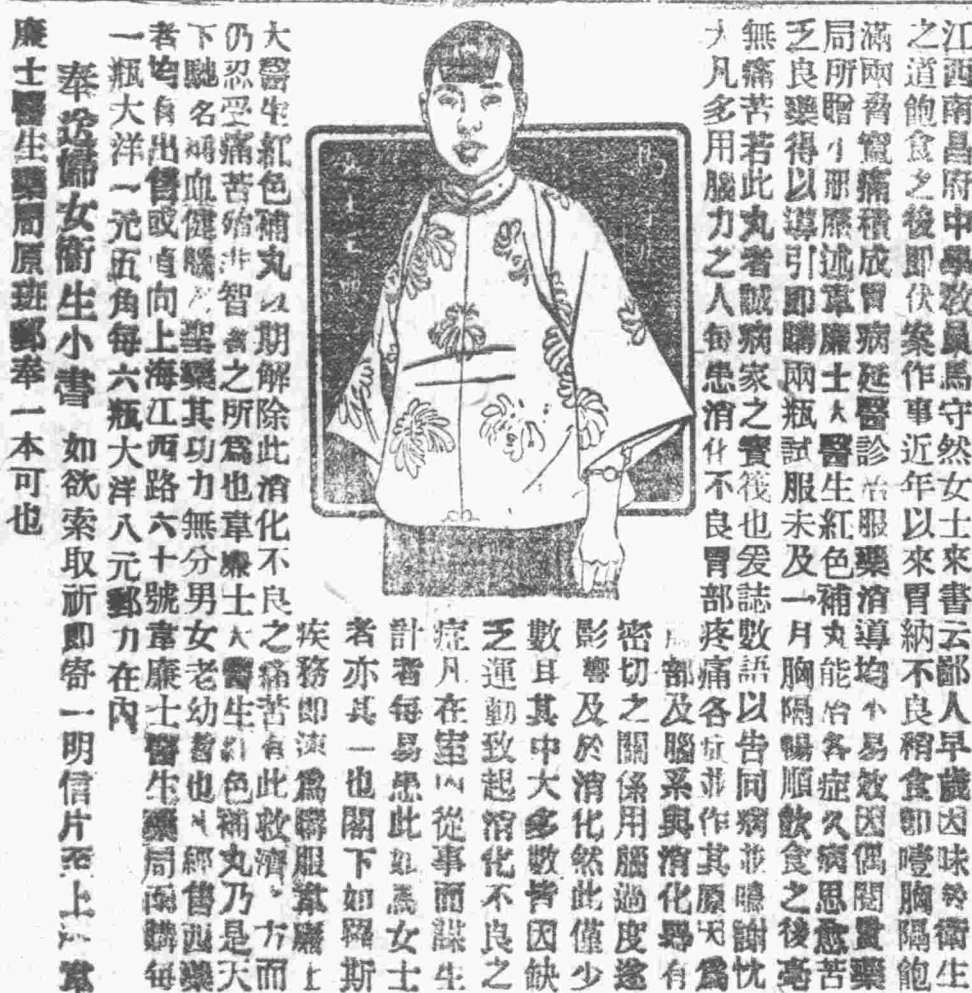 江西南昌府中學敎員馬守然女士來書云鄙人早歲因昧於衞生
之道飽食之後即伏案作事近年以來胃納不良稍食卽噎胸隔飽
滿兩脅竄痛積成胃病延醫診治服藥消導均不易效因偶閱貴藥
局所贈小册歷述韋廉士大醫生紅色補丸能治各症久病思愈苦
乏良藥得以導引卽購兩瓶試服未及一月胸隔暢順飲食之後毫
無痛苦若此丸者誠病家之寶筏也爰誌數語以告同病並鳴謝忱
大凡多用腦力之人每患消化不良胃部疼痛各症並作其原因爲
部及腦系與消化器有
密切之關係用腦過度遂
影響及於消化然此僅少
數耳其中大多數皆因缺
乏運動致起消化不良之
症凡在室內從事而謀生
計者每易患此如馬女士
者亦其一也閣下如罹斯
疾務即速爲購服韋廉士
大醫生紅色補丸以期解除此消化不良之痛苦有此救濟之方而
仍忍受痛苦殆非智者之所爲也韋廉士大醫生紅色補丸乃是天
下馳名補血健腦之聖藥其功力無分男女老幼者也凡經售西藥
者均有出售或直向上海江西路六十號韋廉士醫生藥局函購每
一瓶大洋一元五角每六瓶大洋八元郵力在內
奉送婦女衞生小書 如欲索取祈即寄一明信片至上海韋
廉士醫生藥局原班郵奉一本可也